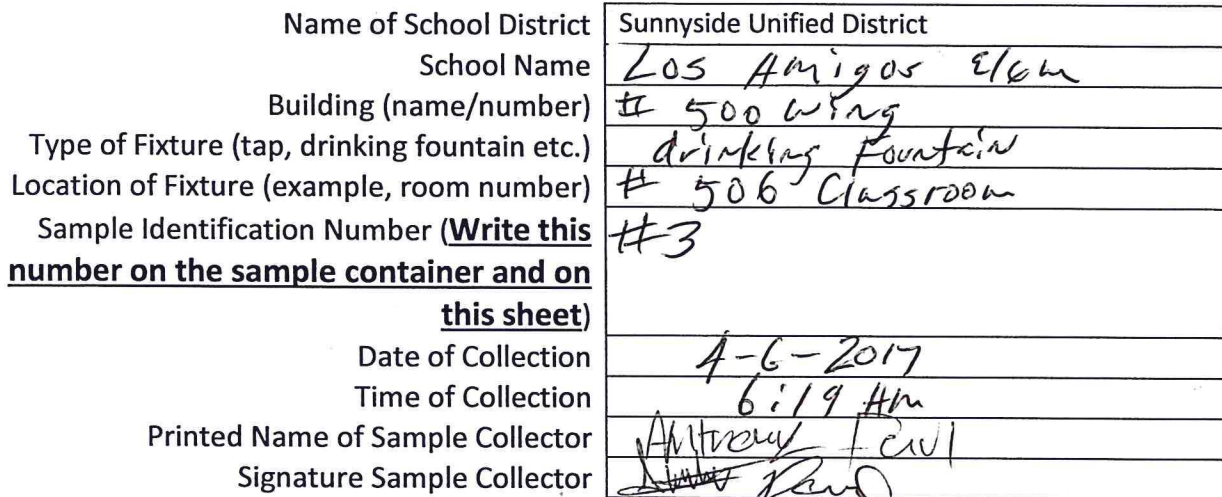 Name of School District Sunnyside Unified District
School Name Los Amigos Elem
Building (name/number) # 500 wing
Type of Fixture (tap, drinking fountain etc.) drinking Fountain
Location of Fixture (example, room number) # 506 Classroom
Sample Identification Number (Write this #3
number on the sample container and on
this sheet)
Date of Collection 4-6-2017
Time of Collection 6:19 Am
Printed Name of Sample Collector Anthony
Signature Sample Collector